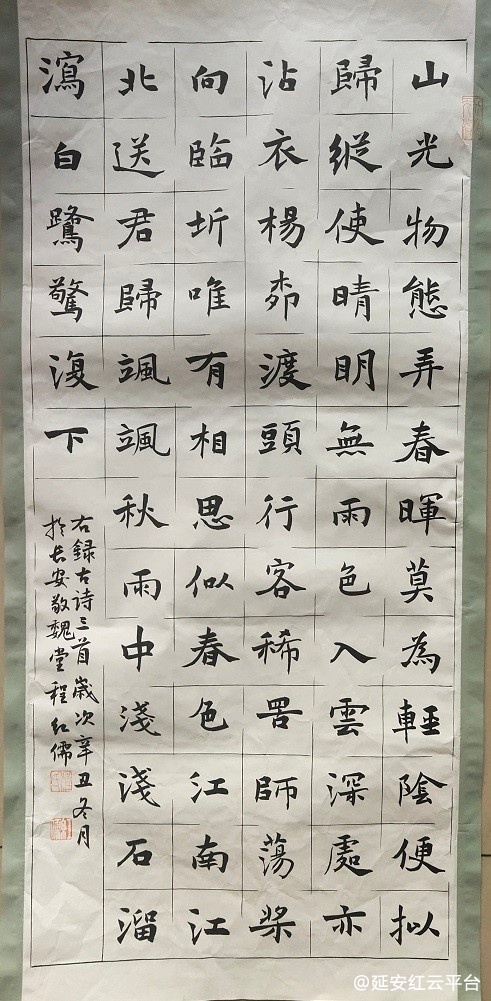 山光物態弄春暉莫為輕陰便拟
歸縱使晴眀無雨色入雲深處亦
沾衣楊柳渡頭行客稀罟師蕩桨
向臨圻唯有相思似春色江南江
北送君歸颯颯秋雨中淺淺石溜
瀉白鷺驚復下
右録古诗三首歲次辛丑冬月
於长安敬魏堂程红儒
@延安红云平台